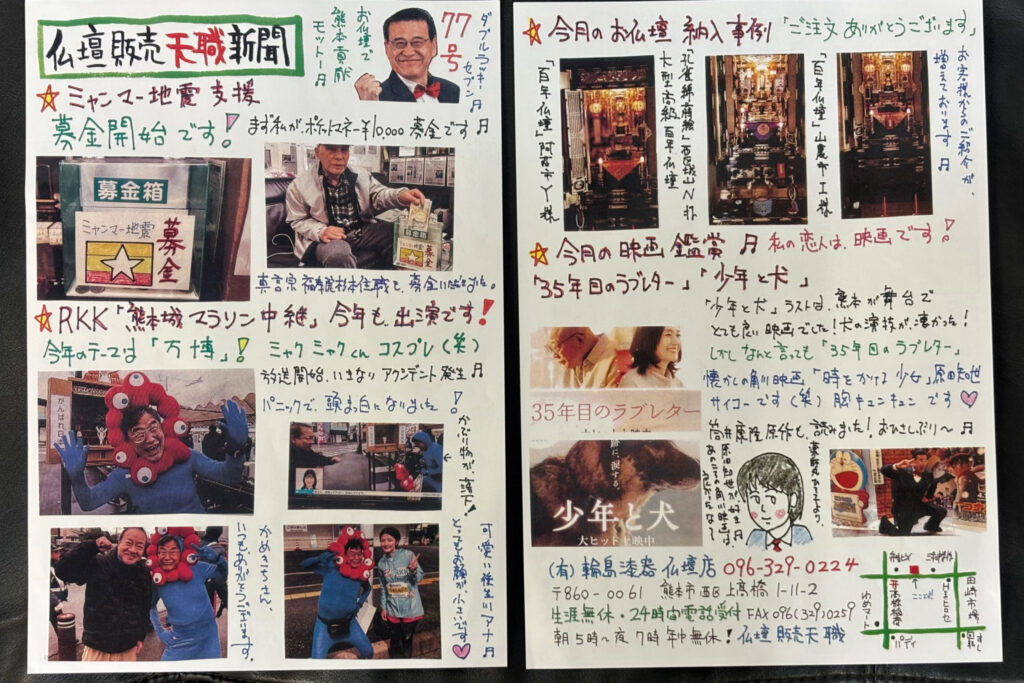 仏壇販売天職新聞
お仏壇で
熊本貢献
モットー♫
ダブルラッキーセブン♫
77号
☆ミャンマー地震支援
募金開始です!
まず私が、ポケットマネー¥10000募金です♫
募金箱
ミャンマー地震
募金
募金箱
募金
☆RKK「熊本城マラソン中継」今年も、出演です!
今年のテーマは「万博」! ミャクミャクくん コスプレ(笑)
放送開始、いきなりアクシデント発生♫
パニックで、頭ま白になりました!
がんばれ日
かぶり物が、落下!
かめきちさん、
いつもありがとうございます。
可愛い後生川アナ♫
とてもお顔が、小さいです♡
☆今月のお仏壇 納入事例「ご注文ありがとうございます」
「百年仏壇」阿蘇市Y様
大型高級百年仏壇
「百年仏壇」山鹿市工様
お客様からのご紹介が、
増えております♫
☆今月の映画鑑賞♫ 私の恋人は、映画です!
「35年目のラブレター」「少年と犬」
「少年と犬」ラストは、熊本が舞台で
とても良い映画でした!犬の演技が、凄かった!
しかしなんと言っても「35年目のラブレター」
懐かしの角川映画「時をかける少女」原田知世
サイコーです(笑)胸キュンキュンです♡
筒井康隆原作も、読みました!おひさしぶり〜♫
35年目のラブレター
大ヒット上映中
少年と犬
大ヒット上映中
原田知世が好き♫
あのころの角川映画は、
良かったなぁ〜
(有)輪島漆器仏壇店 096-329-0224
〒860-0061 熊本市西区上高橋1-11-2
生涯無休・24時間電話受付 FAX 096(329)0259
朝5時〜夜7時 年中無休!仏壇販売天職
ここです!
田崎市場